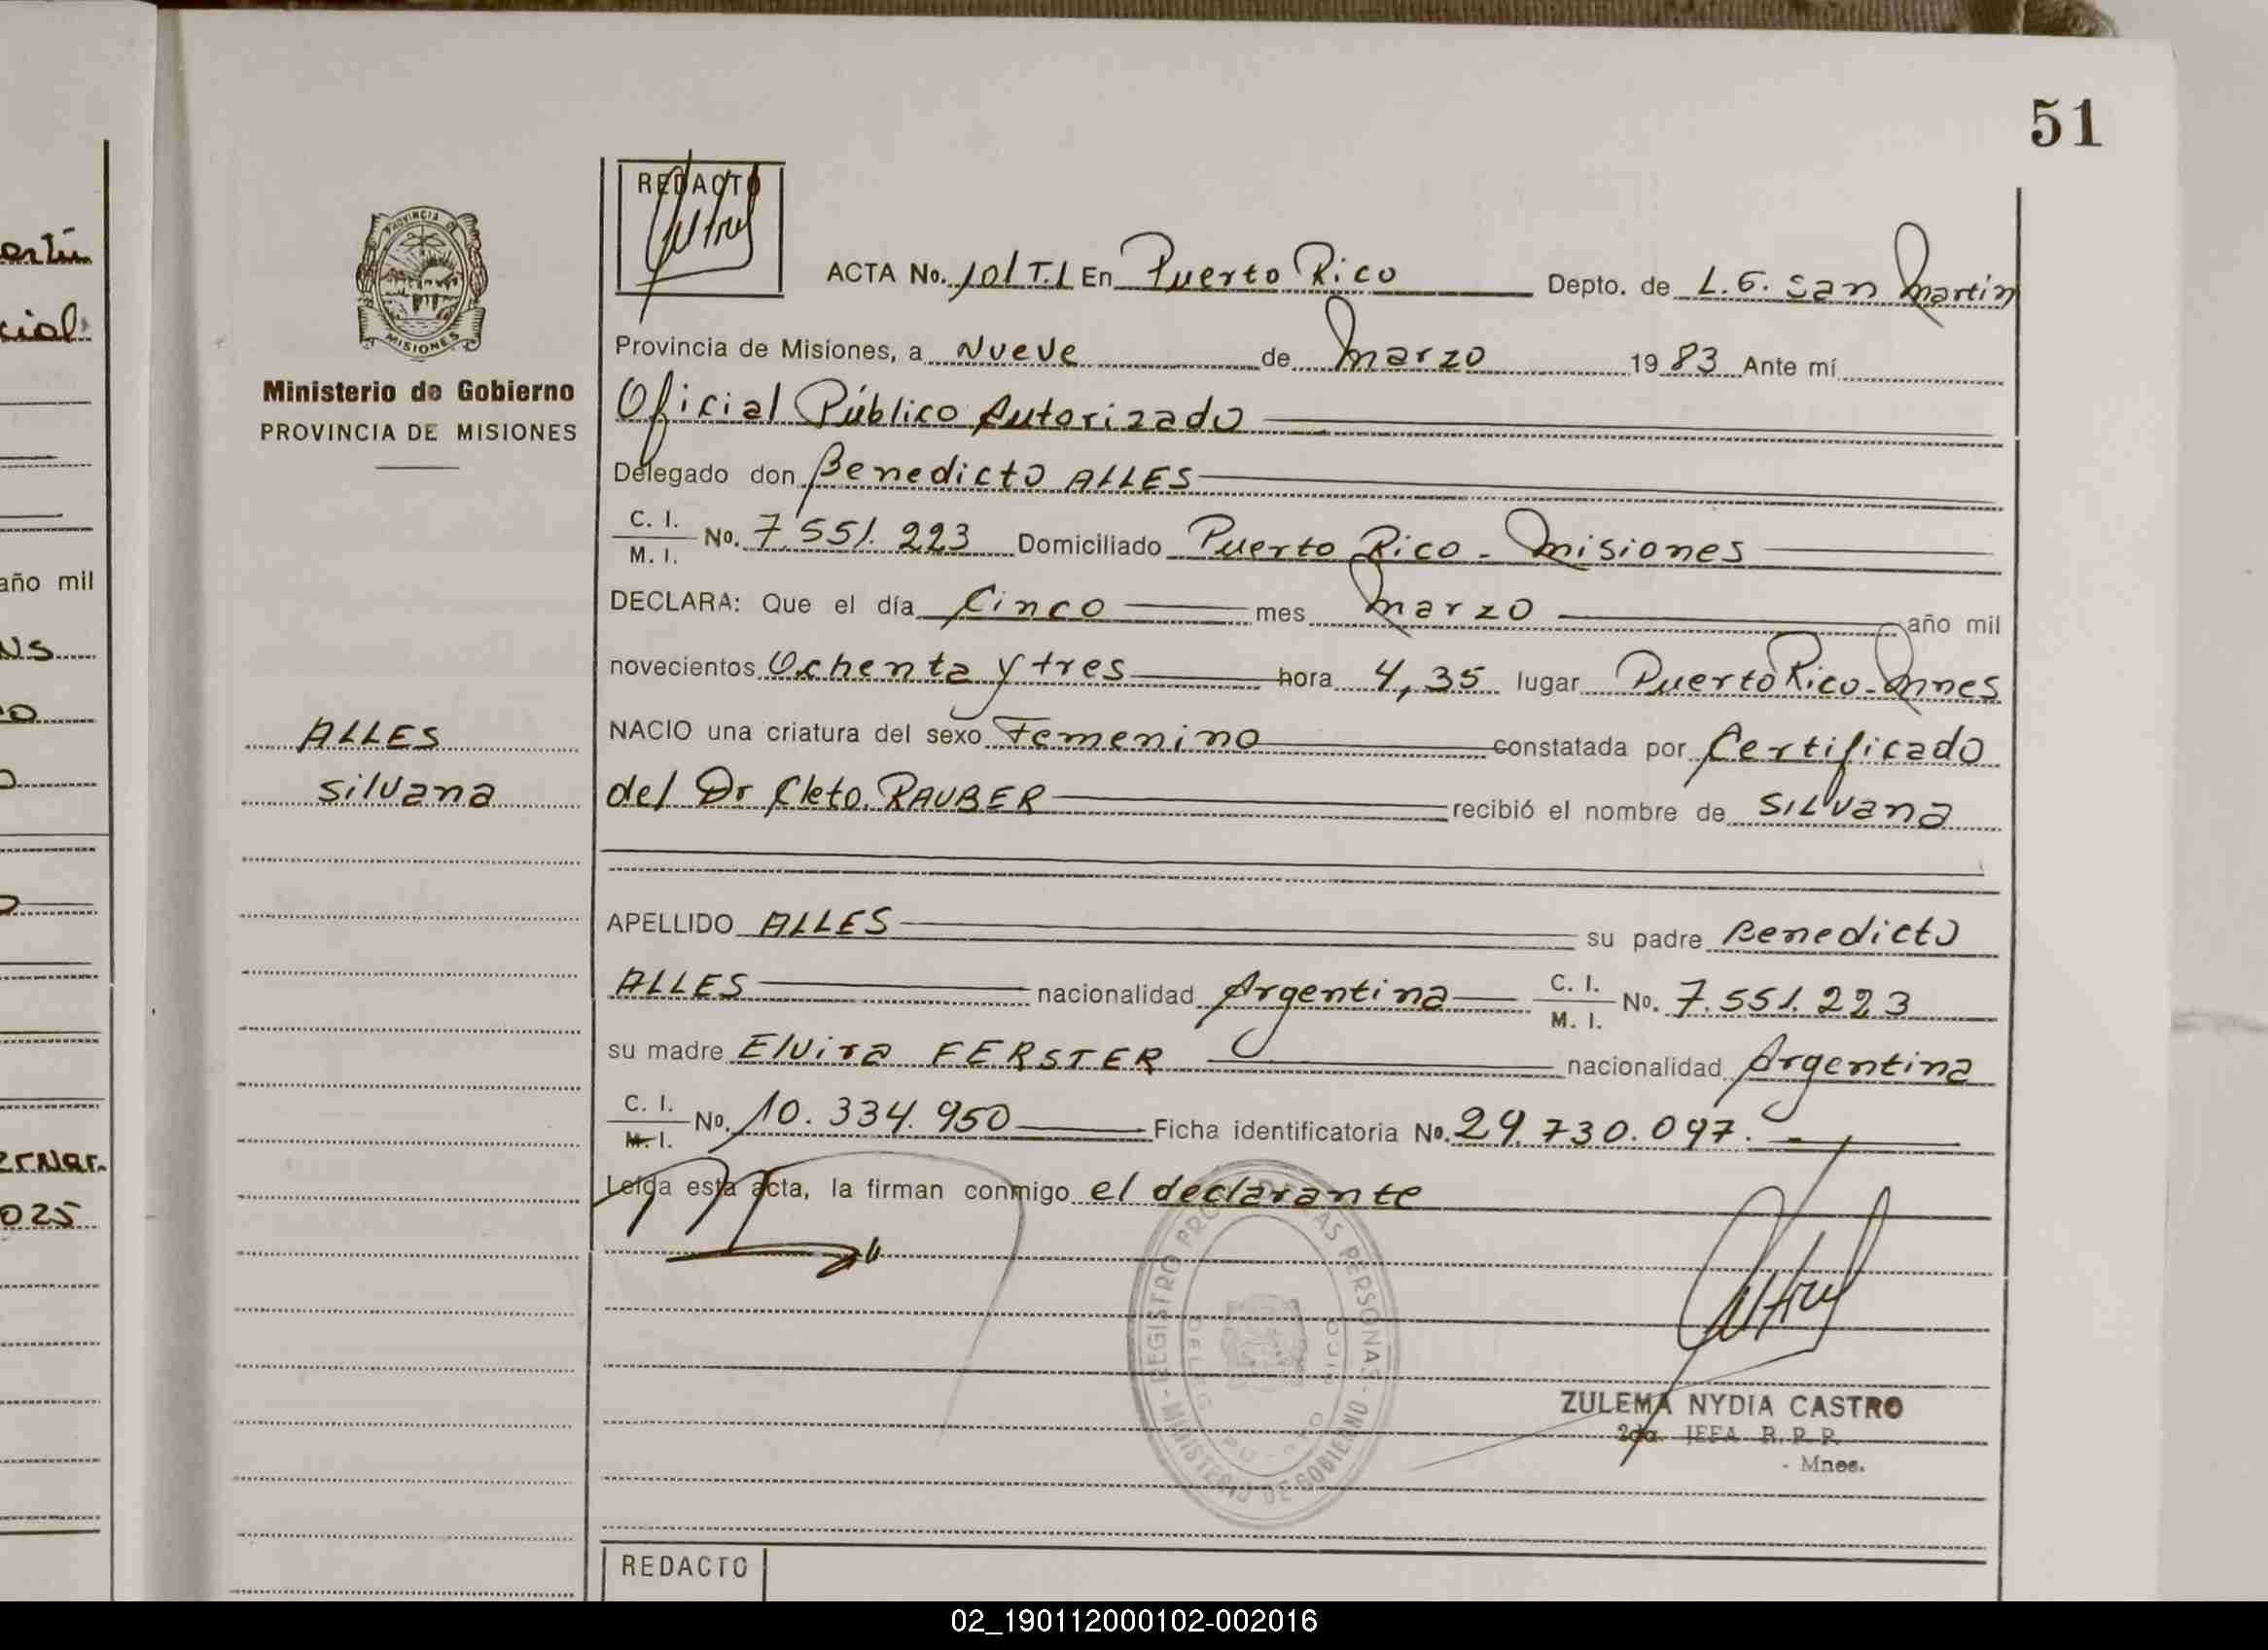 51
REDACTO
ACTA No. 101 T.1 En Puerto Rico Depto. de L.G. San Martin
PROVINCIA DE
MISIONES
Provincia de Misiones, a Nueve de Marzo 1983 Ante mí
Ministerio de Gobierno
PROVINCIA DE MISIONES
Oficial Público Autorizado
Delegado don Benedicto ALLES
C. I.
M. I. No. 7.551.223 Domiciliado Puerto Rico - Misiones
DECLARA: Que el día Cinco mes Marzo año mil
novecientos Ochenta y tres hora 4,35 lugar Puerto Rico - Mnes
ALLES
Silvana
NACIO una criatura del sexo Femenino constatada por Certificado
del Dr Cleto RAUBER recibió el nombre de SILvana
APELLIDO ALLES su padre Benedicto
ALLES nacionalidad Argentina C. I.
M. I. No. 7.551.223
su madre Elvira FERSTER nacionalidad Argentina
C. I.
M. I. No. 10.334.950 Ficha identificatoria No. 29.730.097.
Leída esta acta, la firman conmigo el declarante
REGISTRO DE LAS PERSONAS
MINISTERIO DE GOBIERNO
ZULEMA NYDIA CASTRO
2da. JEFA R. P. P.
- Mnes.
REDACTO
año mil
025
02_190112000102-002016